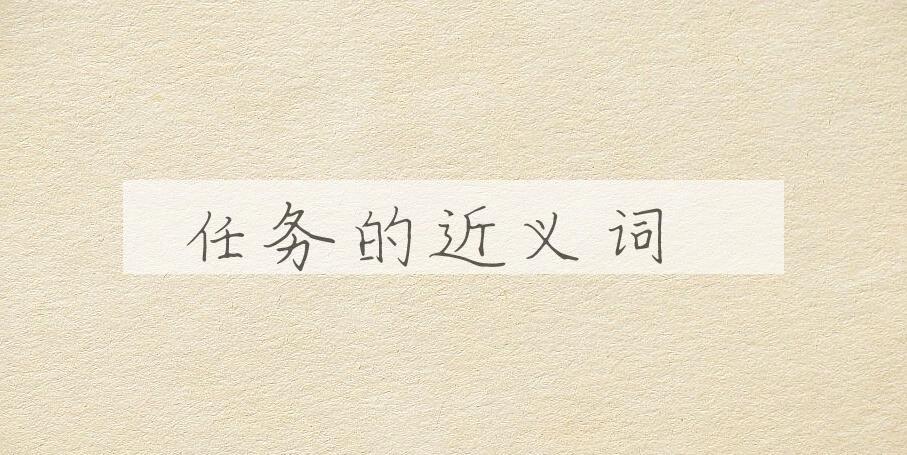 任务的近义词